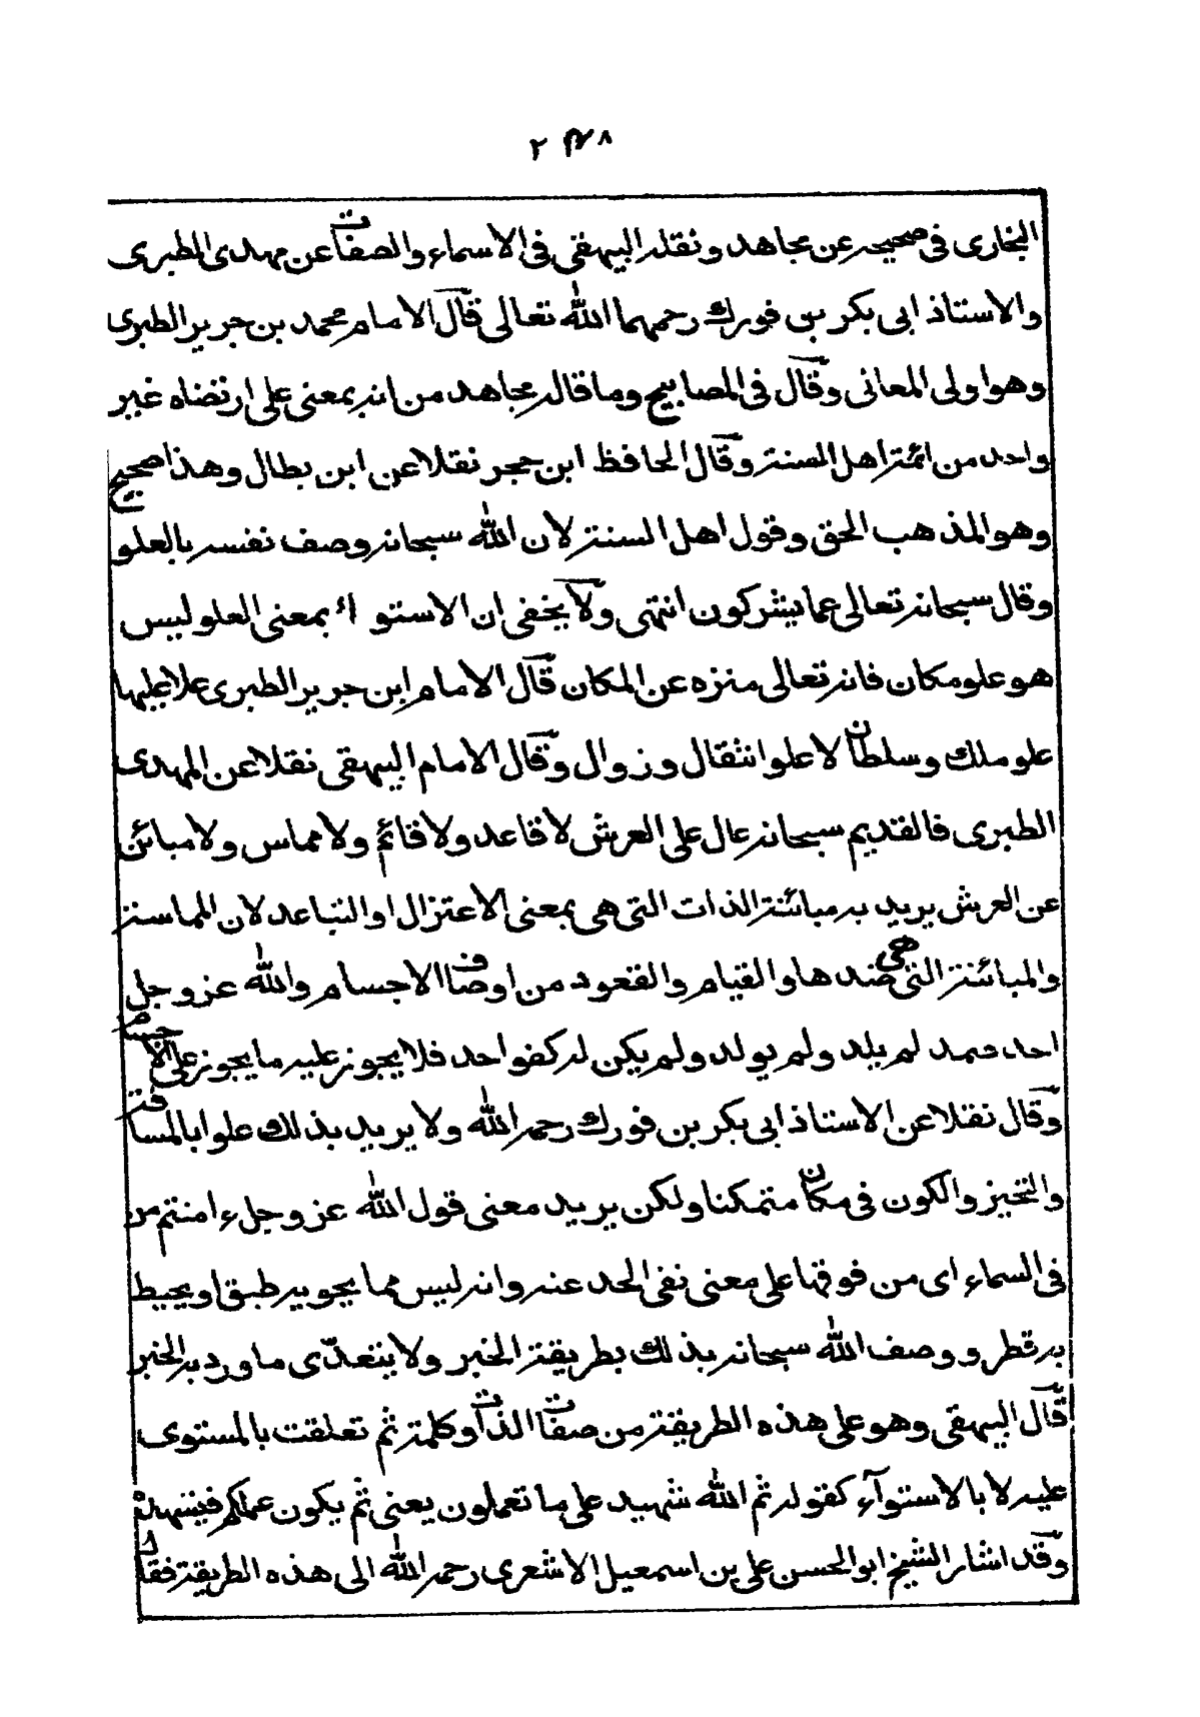 ٢٣٨
البخارى فى صحيحه عن مجاهد ونقله البيهقى فى الاسماء والصفات عن مهدى الطبرى
والاستاذ ابى بكر بن فورك رحمهما الله تعالى قال الامام محمد بن جرير الطبرى
وهو اولى المعانى وقال فى المصابيح وما قاله مجاهد من انه بمعنى على ارتضاه غير
واحد من ائمة اهل السنة وقال الحافظ ابن حجر نقلا عن ابن بطال وهذا صحيح
وهو المذهب الحق وقول اهل السنة لان الله سبحانه وصف نفسه بالعلو
وقال سبحانه تعالى عما يشركون انتهى ولا يخفى ان الاستواء بمعنى العلو ليس
هو علو مكان فانه تعالى منزه عن المكان قال الامام ابن جرير الطبرى علا عليها
علو ملك وسلطان لا علو انتقال وزوال وقال الامام البيهقى نقلا عن المهدى
الطبرى فالقديم سبحانه عال على العرش لا قاعد ولا قائم ولا مماس ولا مبائن
عن العرش يريد به مبائنة الذات التى هى بمعنى الاعتزال او التباعد لان المماسة
والمبائنة التى هى ضدها والقيام والقعود من اوصاف الاجسام والله عز وجل
احد صمد لم يلد ولم يولد ولم يكن له كفوا احد فلا يجوز عليه ما يجوز على الاجسام
وقال نقلا عن الاستاذ ابى بكر بن فورك رحمه الله ولا يريد بذلك علوا بالمسافة
والتحيز والكون فى مكان متمكنا ولكن يريد معنى قول الله عز وجل ءامنتم من
فى السماء اى من فوقها على معنى نفى الحد عنه وانه ليس مما يحويه طبق او يحيط
به قطر ووصف الله سبحانه بذلك بطريقة الخبر ولا يتعدّى ما ورد به الخبر
قال البيهقى وهو على هذه الطريقة من صفات الذات وكلمة ثم تعلقت بالمستوى
عليه لا بالاستوآء كقوله ثم الله شهيد على ما تعملون يعنى ثم يكون عملكم فيشهده
وقد اشار الشيخ ابو الحسن على بن اسمعيل الاشعرى رحمه الله الى هذه الطريقة فقال